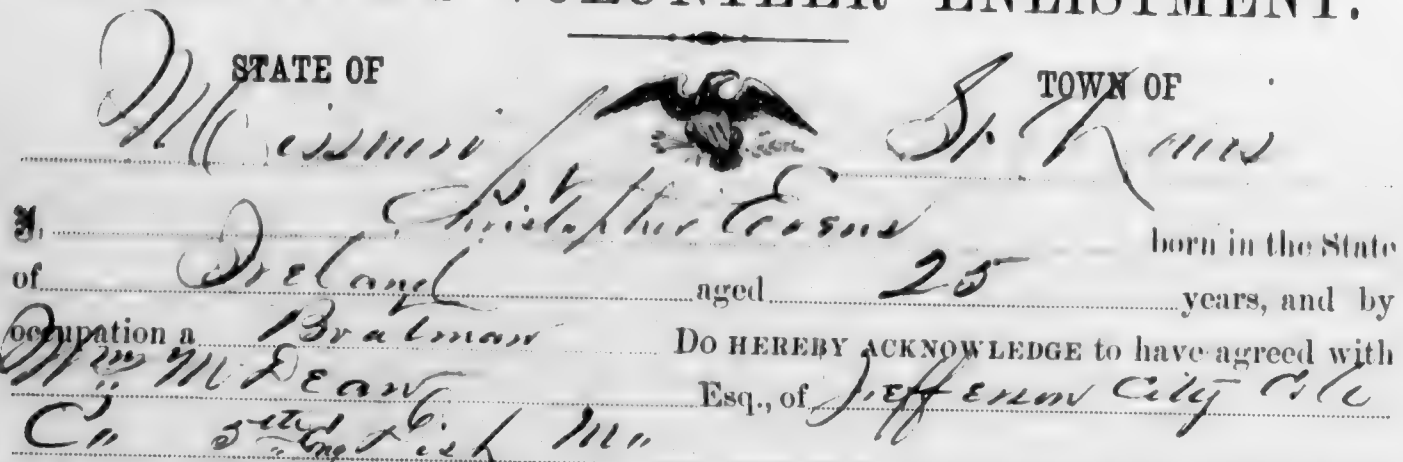 VOLUNTEER ENLISTMENT.
STATE OF TOWN OF
Missouri St. Louis
I, Christopher born in the State
of Ireland aged 25 years, and by
occupation a Boatman DO HEREBY ACKNOWLEDGE to have agreed with
Wm M Dean Esq., of Jefferson City Cole
Co Mo